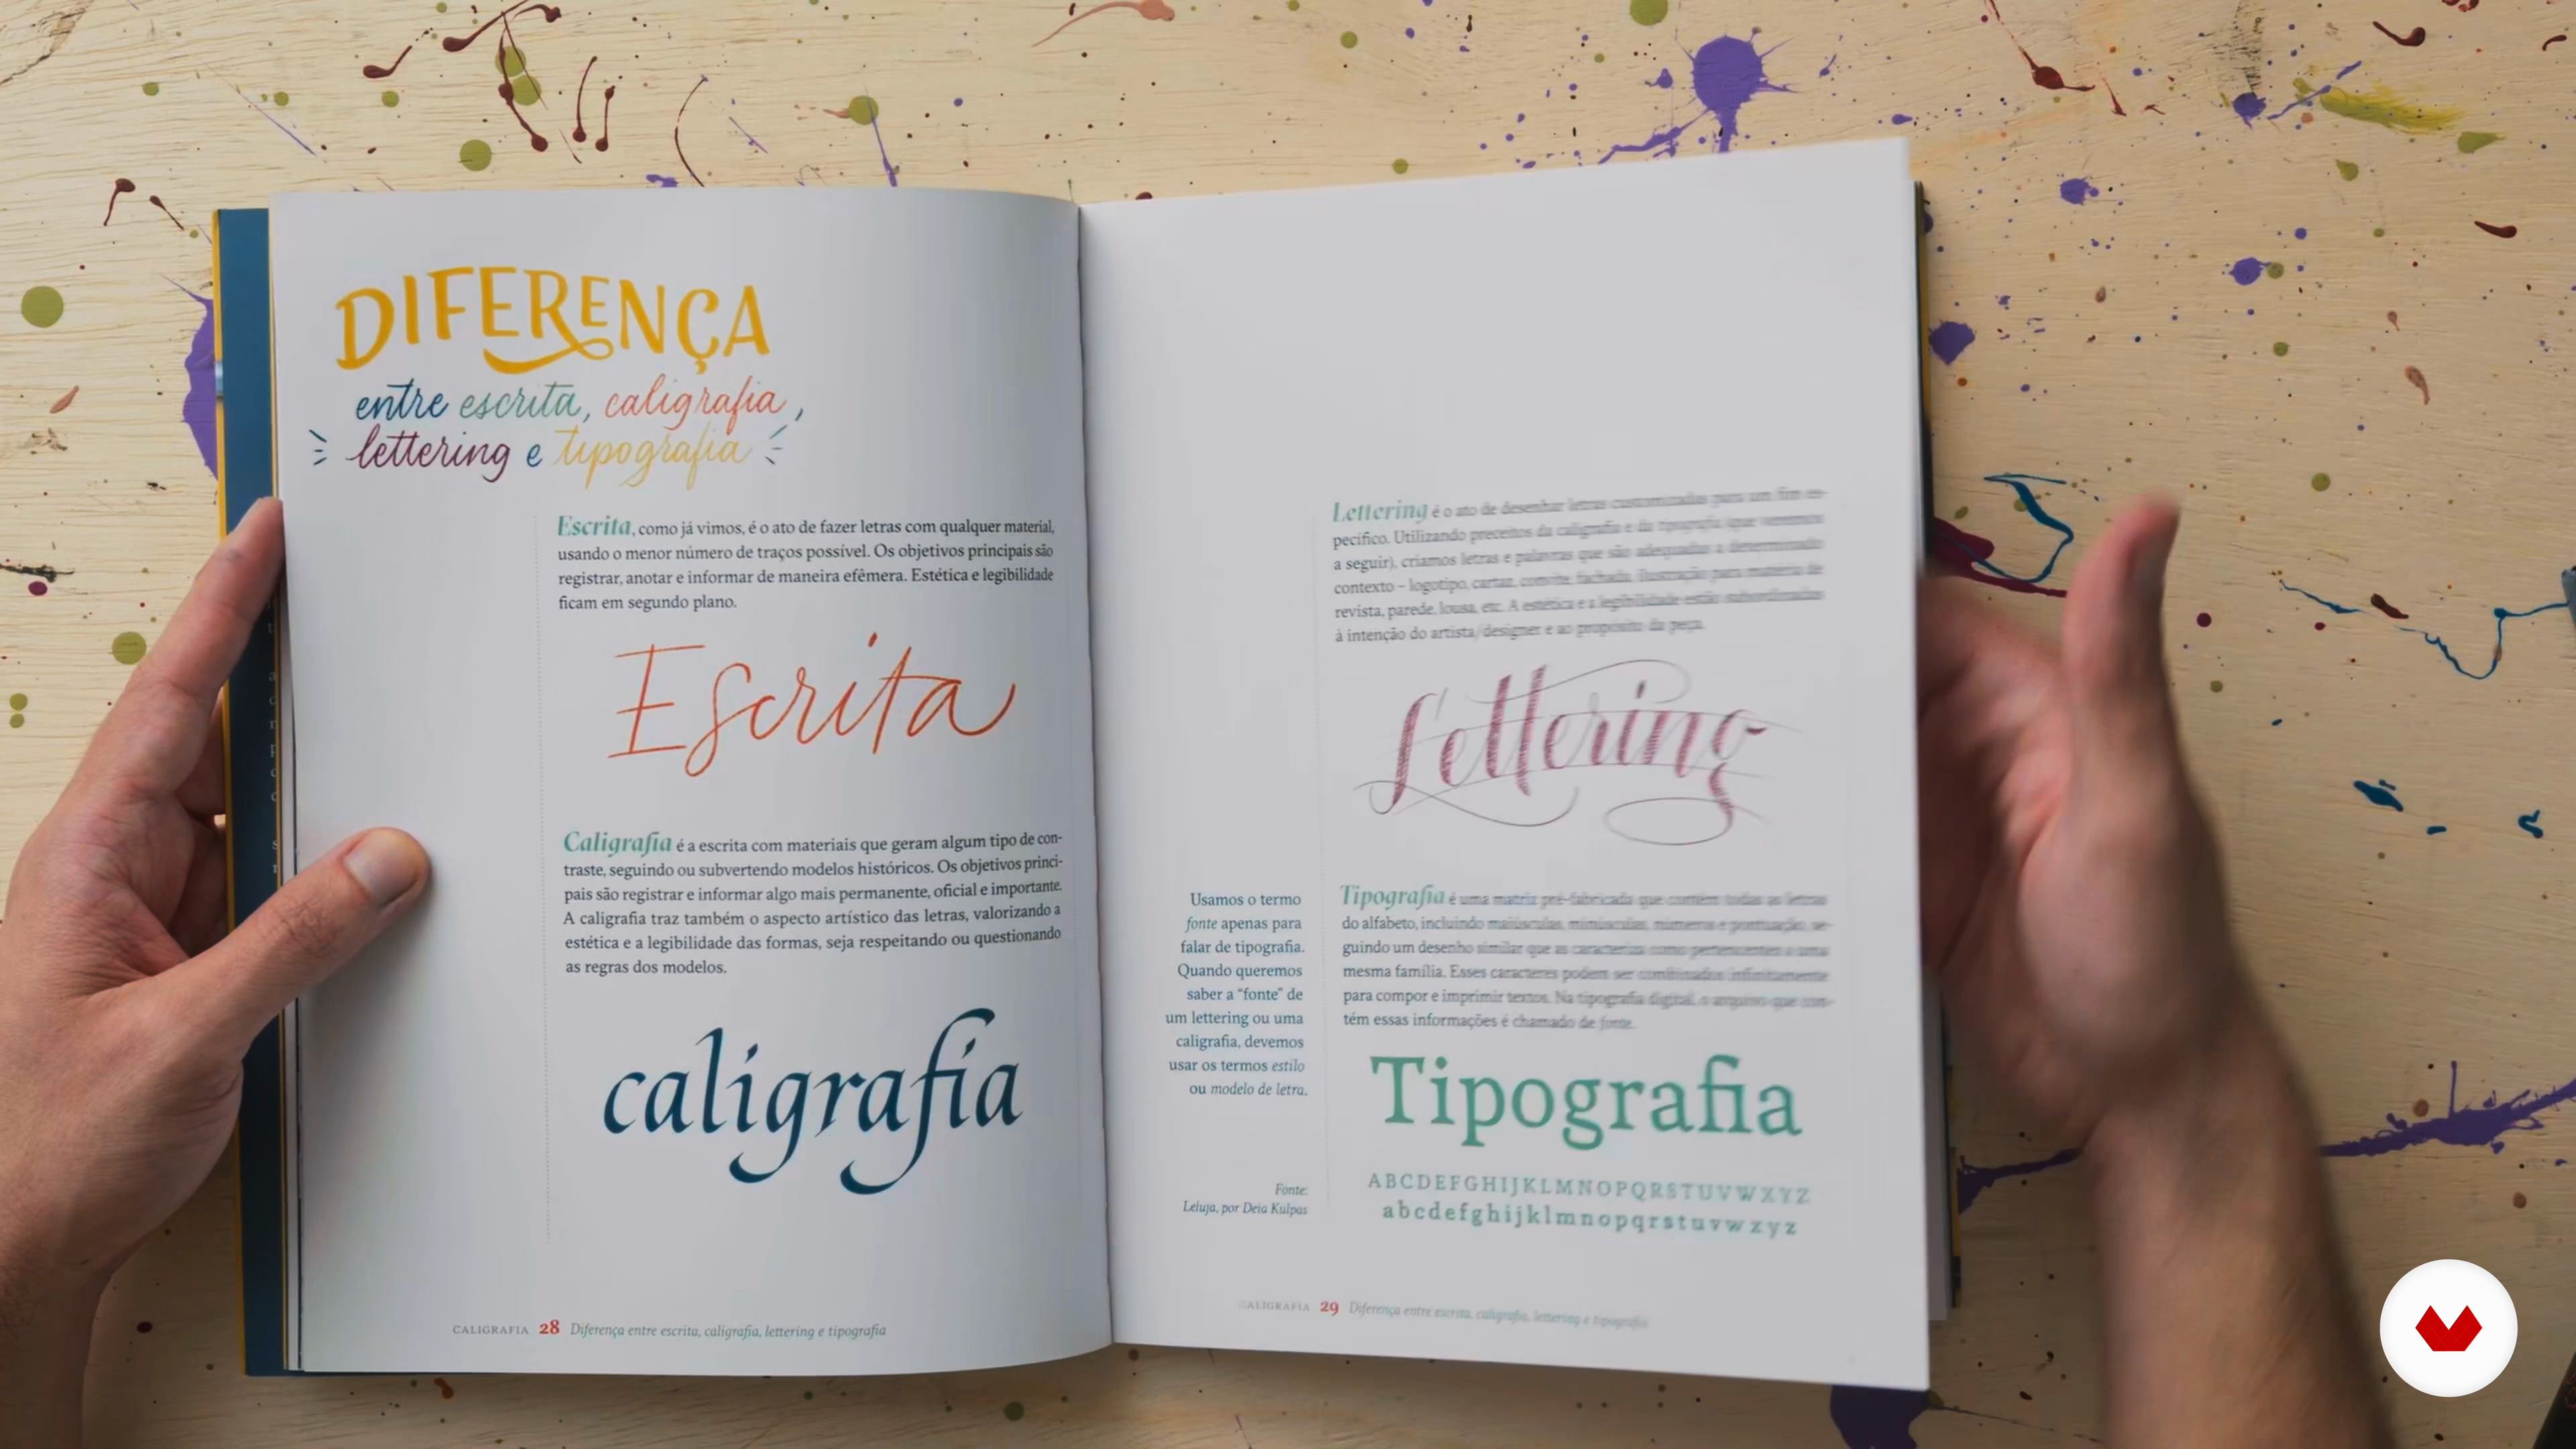 DIFERENÇA
entre escrita, caligrafia,
lettering e tipografia
Escrita, como já vimos, é o ato de fazer letras com qualquer material,
usando o menor número de traços possível. Os objetivos principais são
registrar, anotar e informar de maneira efêmera. Estética e legibilidade
ficam em segundo plano.
Escrita
Caligrafia é a escrita com materiais que geram algum tipo de con-
traste, seguindo ou subvertendo modelos históricos. Os objetivos princi-
pais são registrar e informar algo mais permanente, oficial e importante.
A caligrafia traz também o aspecto artístico das letras, valorizando a
estética e a legibilidade das formas, seja respeitando ou questionando
as regras dos modelos.
caligrafia
CALIGRAFIA 28 Diferença entre escrita, caligrafia, lettering e tipografia
Lettering é o ato de desenhar letras customizadas para um fim es-
pecífico. Utilizando preceitos da caligrafia e da tipografia (que veremos
a seguir), criamos letras e palavras que são adequadas a determinado
contexto – logotipo, cartaz, convite, fachada, ilustração para matéria de
revista, parede, lousa, etc. A estética e a legibilidade estão subordinadas
à intenção do artista/designer e ao propósito da peça.
Lettering
Usamos o termo
fonte apenas para
falar de tipografia.
Quando queremos
saber a “fonte” de
um lettering ou uma
caligrafia, devemos
usar os termos estilo
ou modelo de letra.
Tipografia é uma matriz pré-fabricada que contém todas as letras
do alfabeto, incluindo maiúsculas, minúsculas, números e pontuação, se-
guindo um desenho similar que as caracteriza como pertencentes a uma
mesma família. Esses caracteres podem ser combinados infinitamente
para compor e imprimir textos. Na tipografia digital, o arquivo que con-
tém essas informações é chamado de fonte.
Tipografia
ABCDEFGHIJKLMNOPQRSTUVWXYZ
abcdefghijklmnopqrstuvwxyz
Fonte:
Leluja, por Deia Kulpas
CALIGRAFIA 29 Diferença entre escrita, caligrafia, lettering e tipografia